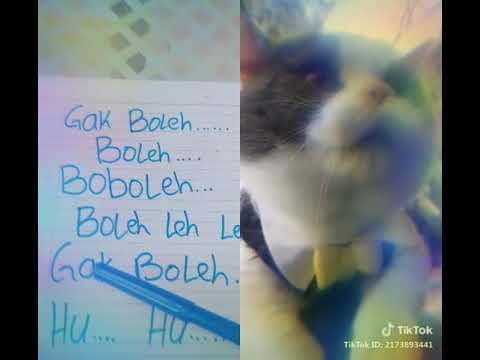 Gak Boleh......
Boleh....
Boboleh...
Boleh leh Le
Gak Boleh.
Hu.... Hu......
TikTok
TikTok ID: 2173893441